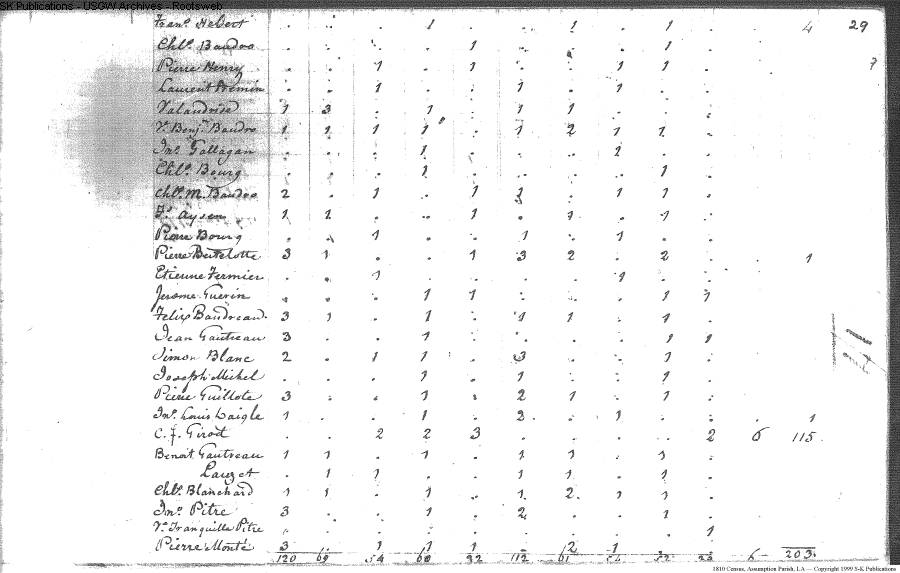 SK Publications - USGW Archives - Rootsweb
Fran.s Hebert . . . 1 . . 1 . 1 . 4 29
Chls. Baudro . . . . 1 . . . 1 .
Pierre Henry . . 1 . 1 . . 1 1 . 7
Laurent . . 1 . . 1 . 1 . .
1 3 . 1 . 1 1 . . .
Ve. Benj.n Baudro 1 1 1 1 . 1 2 1 1 .
Jno. Gallagan . . . 1 . . . 1 . .
Chls. Bourg . . . 1 . . . . 1 .
Chls. M. Baudro 2 . 1 . 1 1 . 1 1 .
Aysen 1 1 . . 1 . 1 . 1 .
Pierre Bourg . . 1 . . 1 . 1 . .
Pierre Bertelotte 3 1 . . 1 3 2 . 2 . 1
Etienne Fermier . . 1 . . . . 1 . .
Jerome Guerin . . . 1 1 . . . 1 1
Felix Baudreau 3 1 . 1 . 1 1 . 1 .
Jean Gautreau 3 . . 1 . . . . 1 1
Simon Blanc 2 . 1 1 . 3 . . 1 .
Joseph Michel . . . 1 . 1 . . 1 .
Pierre Guillote 3 . . 1 . 2 1 . 1 .
Jno. Louis Daigle 1 . . 1 . 2 . 1 . . . 1
C. J. Girod . . 2 2 3 . . . . 2 6 115.
Benoit Gautreau 1 1 . 1 . 1 1 . 1 .
Lauzet . 1 1 . . 1 1 . 1 .
Chls. Blanchard 1 1 . 1 . 1 2 1 1 .
Jno. Pitre 3 . . 1 . 2 . . 1 .
Ve. Tranquille Pitre . . . . . . . . . 1
Pierre Monté 3 . 1 1 1 . 2 1 . .
120 54 112 61 52 6 203.
1810 Census, Assumption Parish, LA — Copyright 1999 S-K Publications